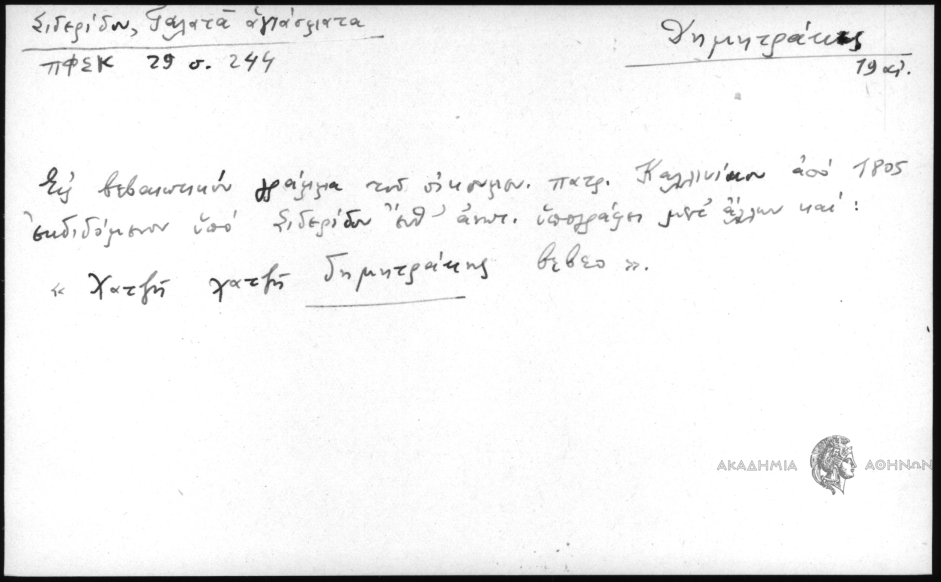 Σιδερίδου, Γαλατᾶ ἁγιάσματα
ΠΦΣΚ 29 σ. 244
Δημητράκης
19 αἰ.
Εἰς βεβαιωτικόν γράμμα τοῦ οἰκουμεν. πατρ. Καλλινίκου ἀπό 1805
ἐκδιδόμενον ὑπό Σιδερίδου ἔνθ' ἀνωτ. ὑπογράφει μετ' ἄλλων καί :
« Χατζῆ χατζῆ δημητράκης βεβεο ».
ΑΚΑΔΗΜΙΑ ΑΘΗΝΩΝ